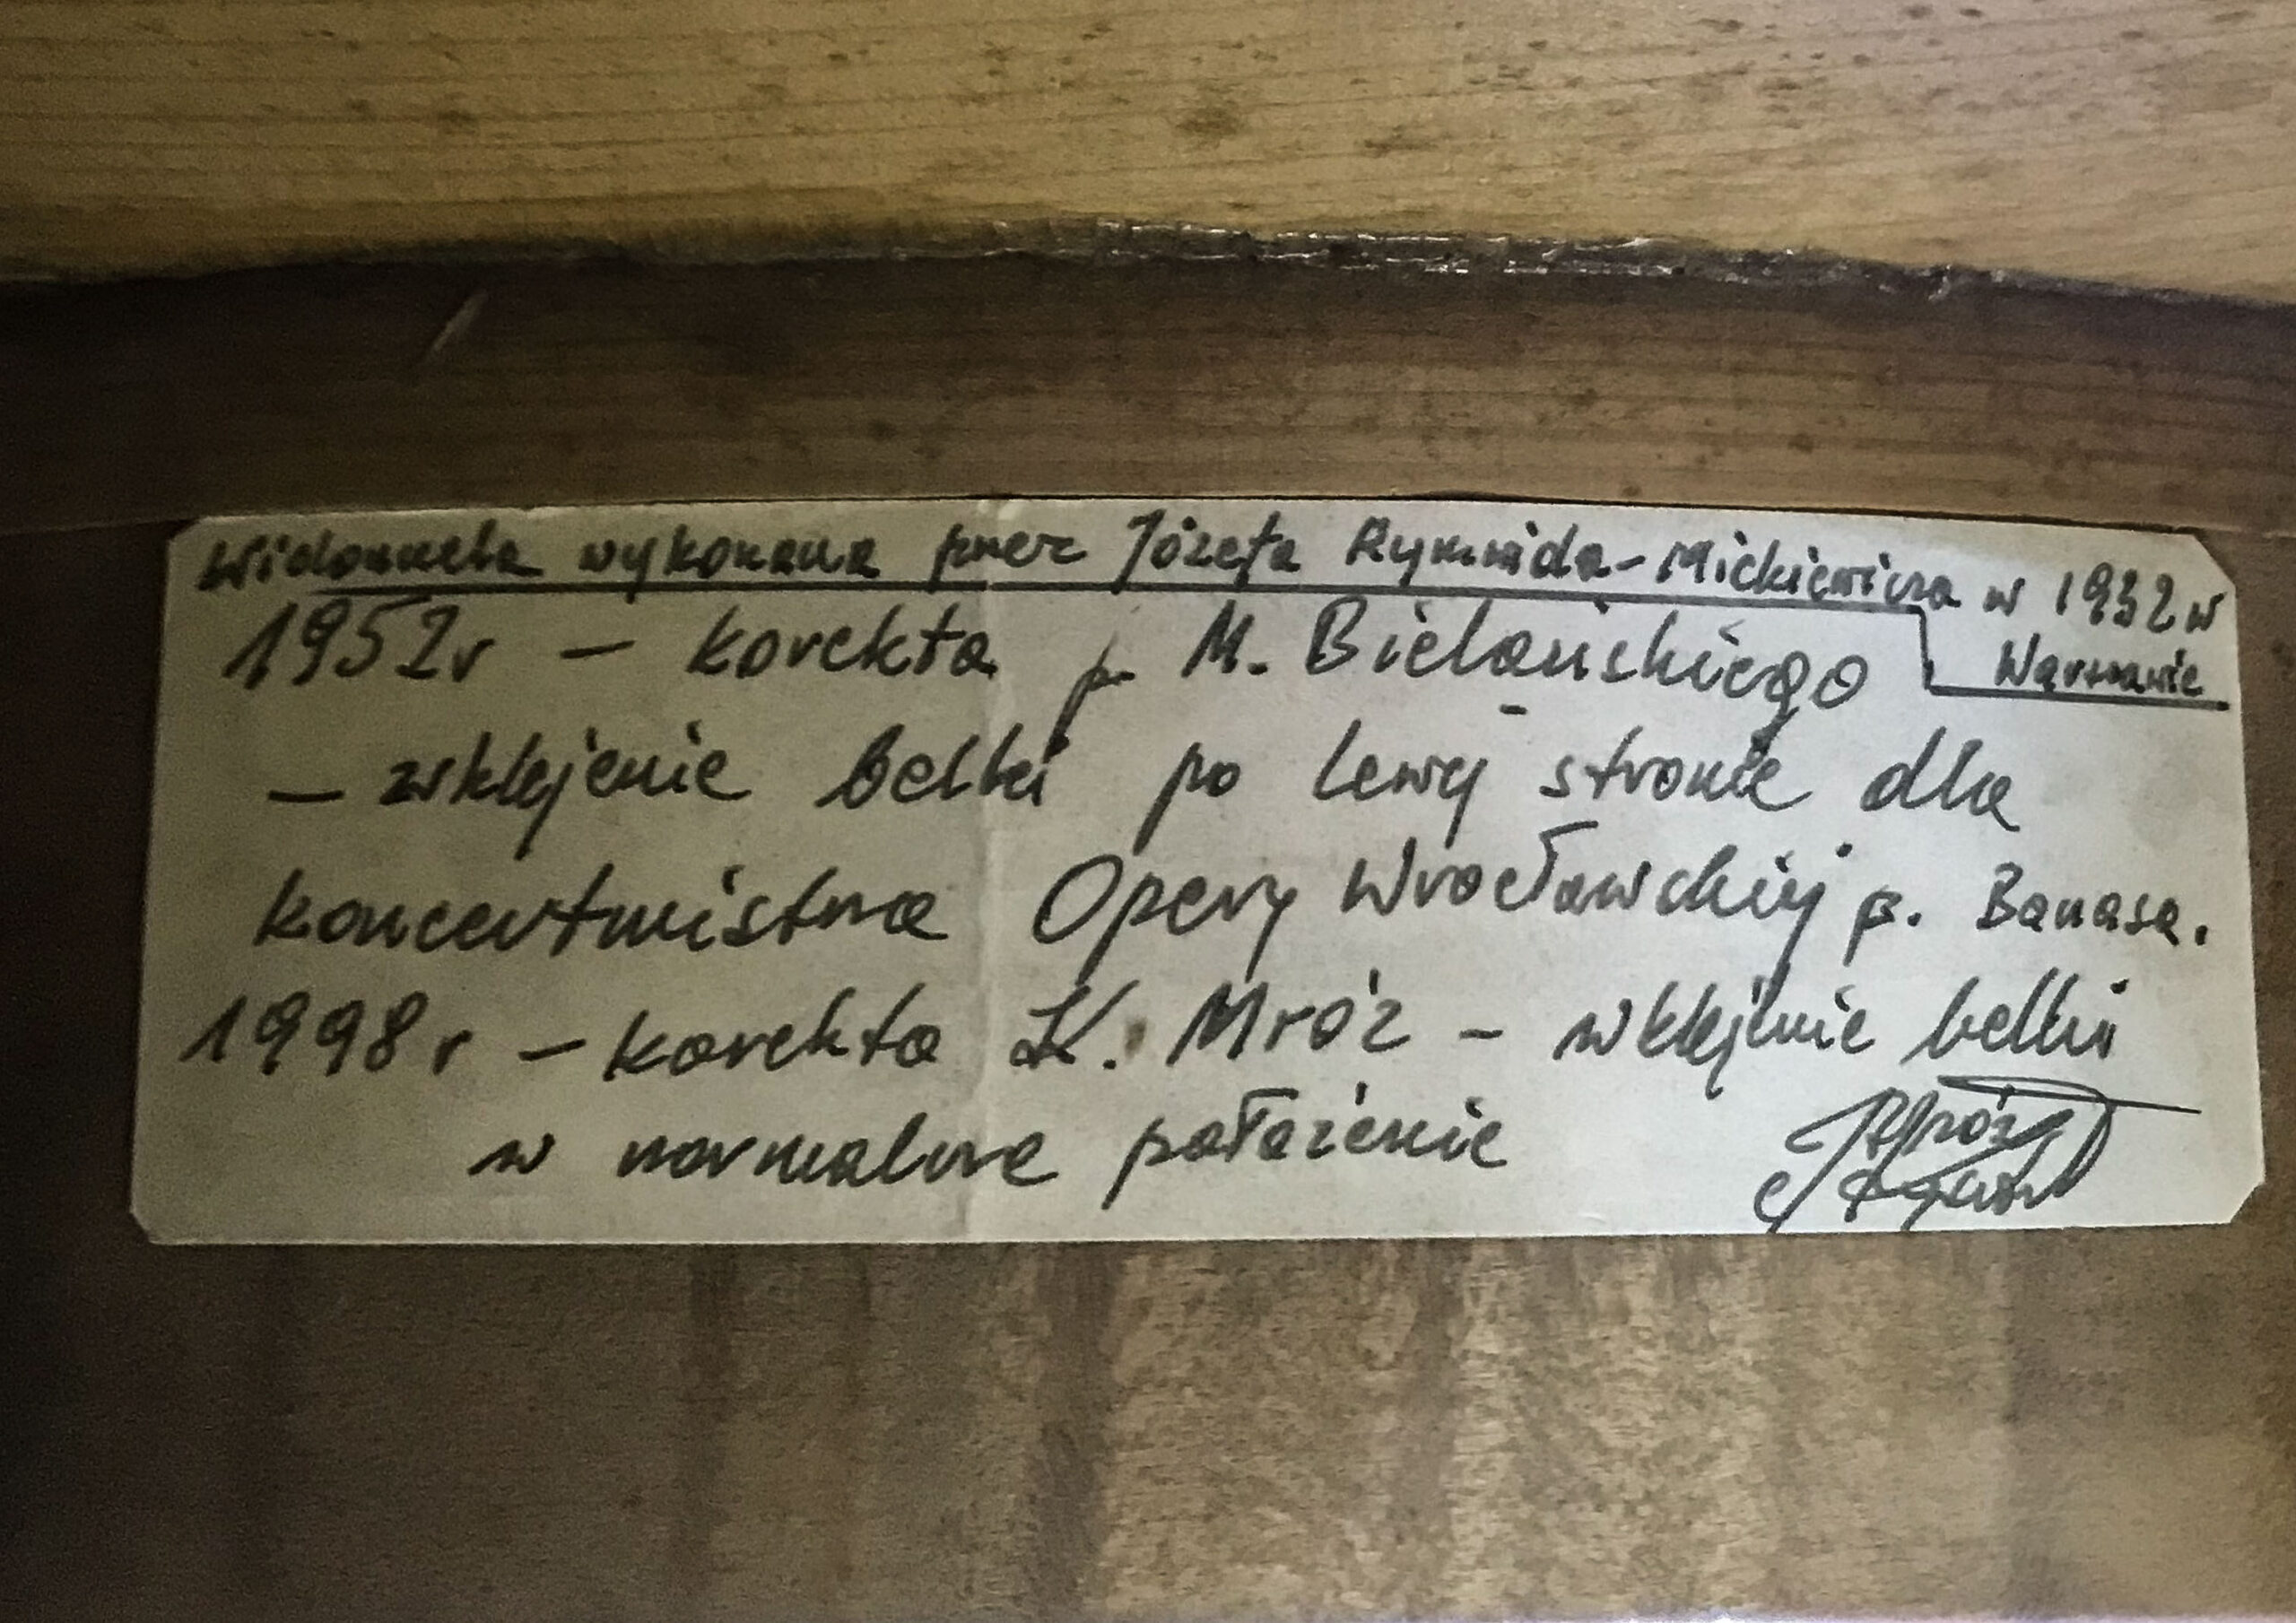 Wiolonczela wykonana przez Józefa Rymwida-Mickiewicza w 1932 w
Warszawie
1952r – korekta p. M. Bielańskiego
– wklejenie belki po lewej stronie dla
koncertmistrza Opery Wrocławskiej p. Banasa.
1998r – korekta K. Mróz – wklejenie belki
w normalne położenie
Mróz